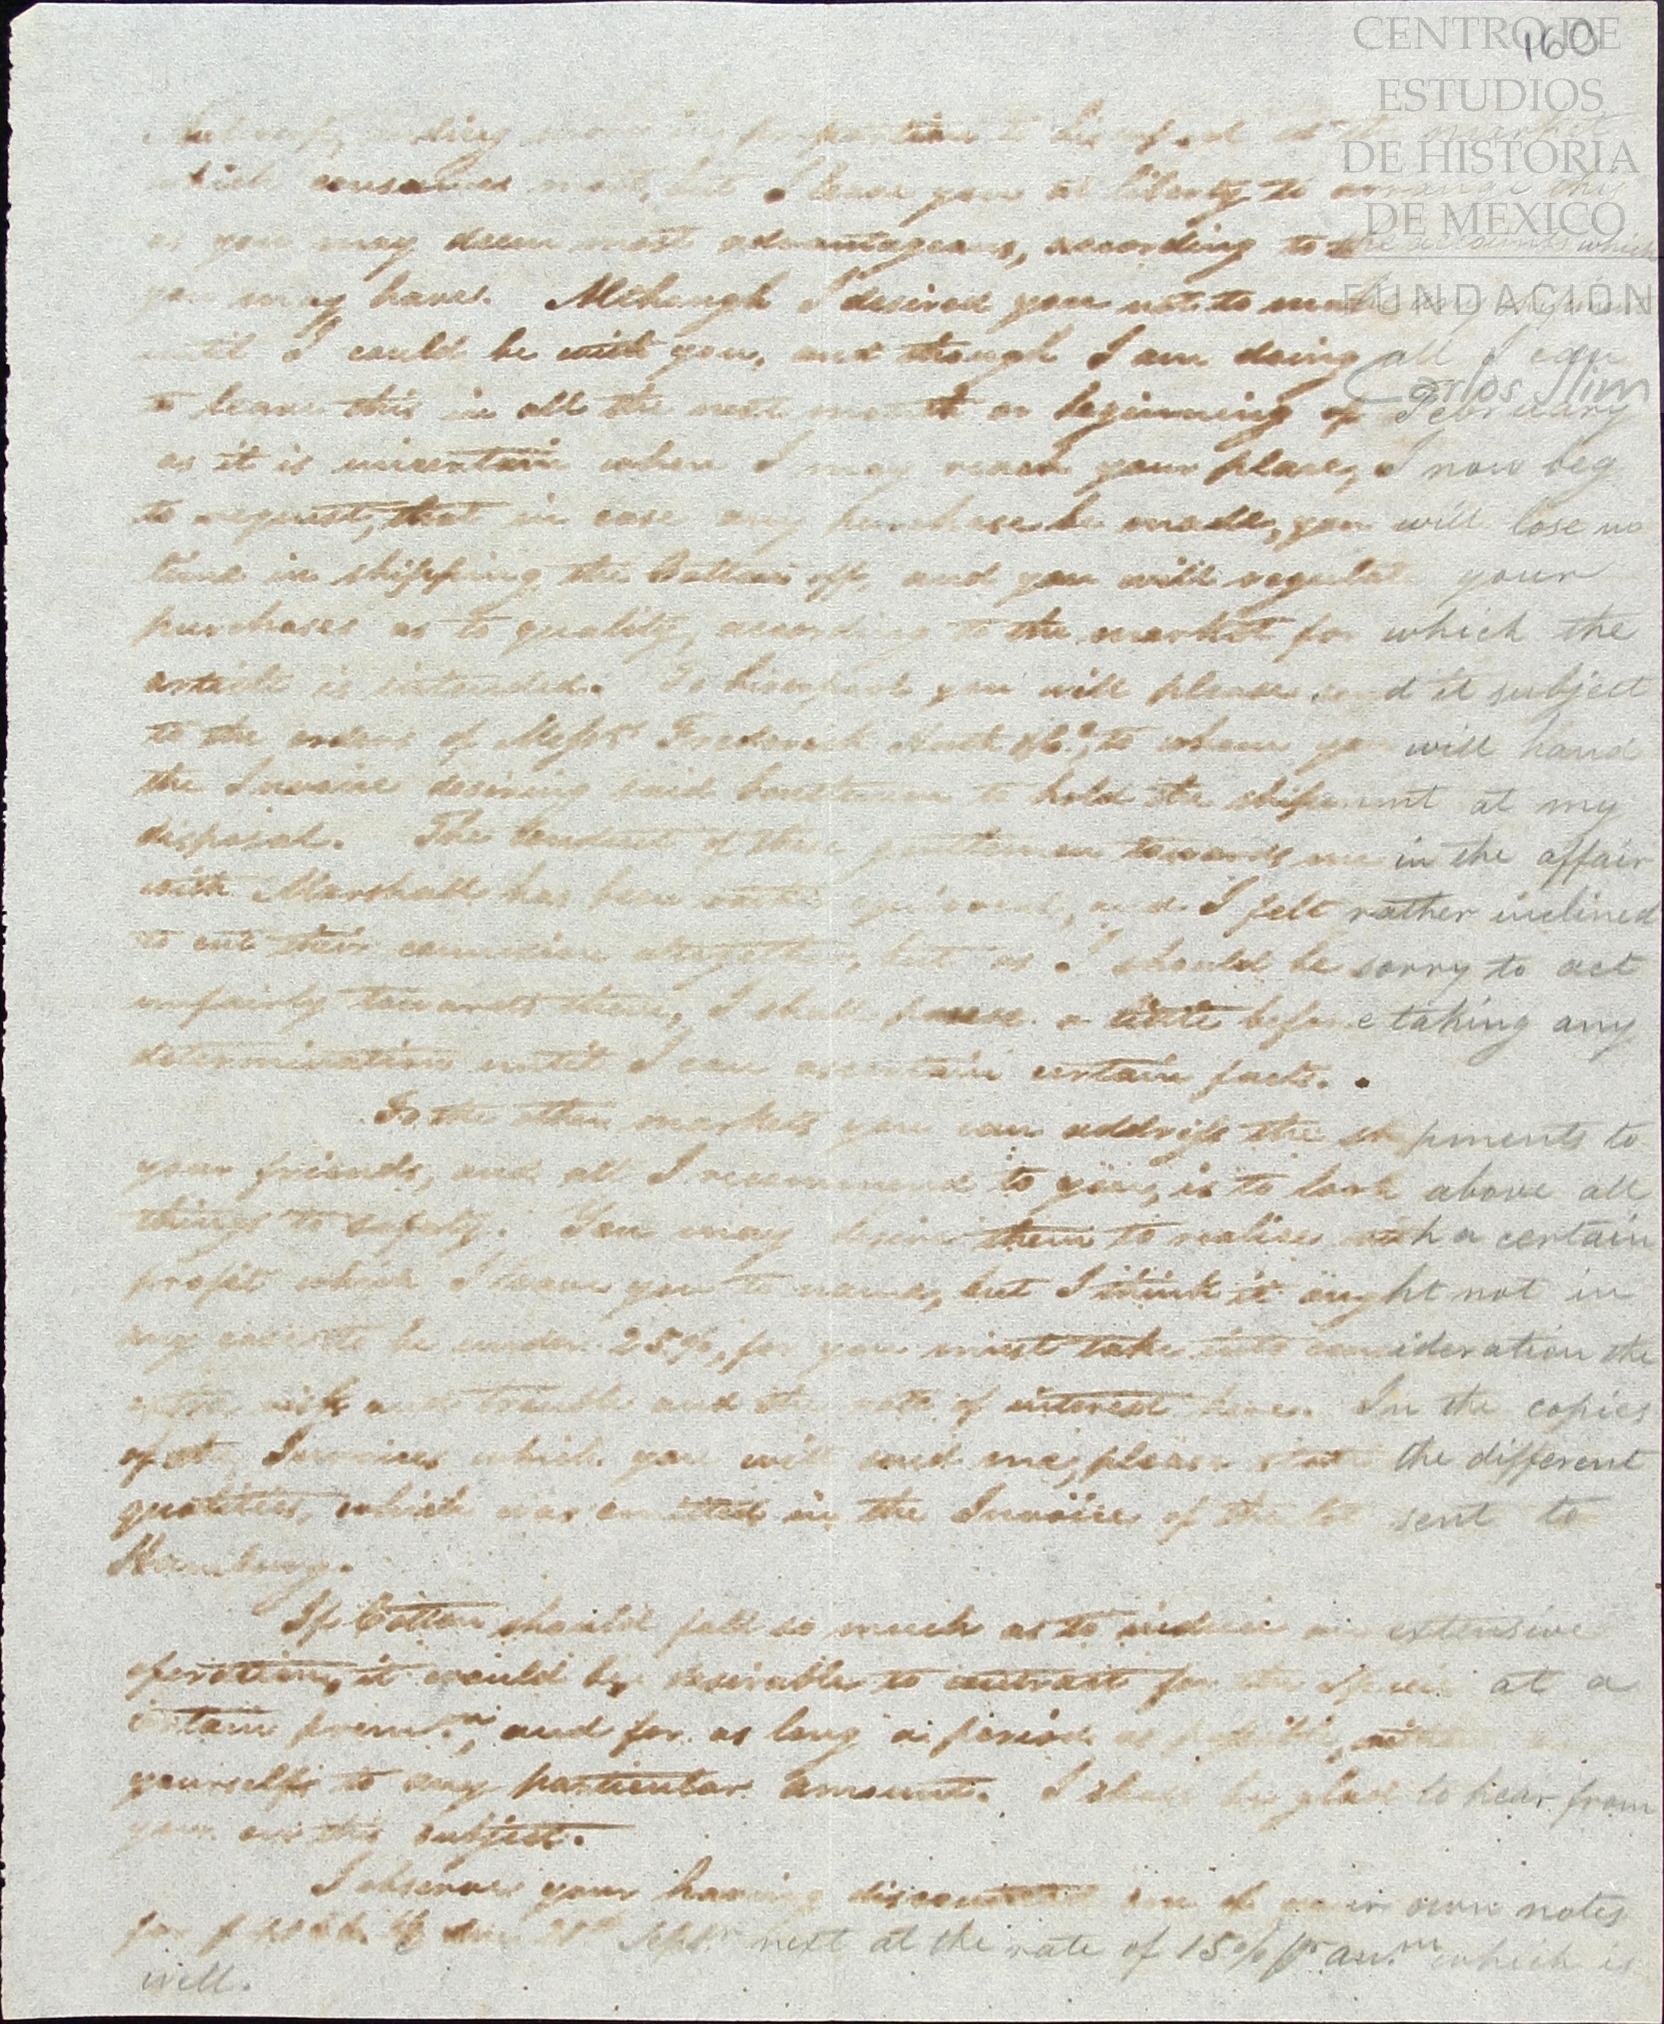 160
CENTRO DE
ESTUDIOS
DE HISTORIA
DE MEXICO
FUNDACION
Carlos Slim
in proportion to Liverpool as the market
which consumes most, but I leave you at liberty to arrange this
as you may deem most advantageous, according to the accounts which
you may have. Although I desired you not to make any shipment
until I could be with you, and though I am doing all I can
to leave this in all the next month or beginning of February
as it is uncertain when I may reach your place, I now beg
to request, that in case any purchase be made, you will lose no
time in shipping the Cotton off, and you will regulate your
purchases as to quality, according to the market for which the
article is intended. To Liverpool you will please send it subject
to the orders of Messrs Frederick Huth & Co., to whom you will hand
the Invoice desiring said Gentlemen to hold the shipment at my
disposal. The Conduct of these gentlemen towards me in the affair
with Marshall has been rather equivocal, and I felt rather inclined
to cut their connexion altogether, but as I should be sorry to act
unfairly towards them, I shall pause a little before taking any
determination until I can ascertain certain facts.
To the other markets you can address the shipments to
your friends, and all I recommend to you, is to look above all
things to safety. You may desire them to realise with a certain
profit which I leave you to name, but I think it ought not in
any case to be under 25%, for you must take into consideration the
extra risk and trouble and the rate of interest here. In the copies
of the Invoices which you will send me, please state the different
qualities, which was omitted in the Invoice of the lot sent to
Hamburg.
If Cotton should fall so much as to induce an extensive
operation, it would be desirable to contract for the Specie at a
certain premm, and for as long a period as possible,
yourselfs to any particular amount. I shall be glad to hear from
you on this subject.
I observe your having discounted one of your own notes
for due Septr next at the rate of 15% pr anm which is
well.